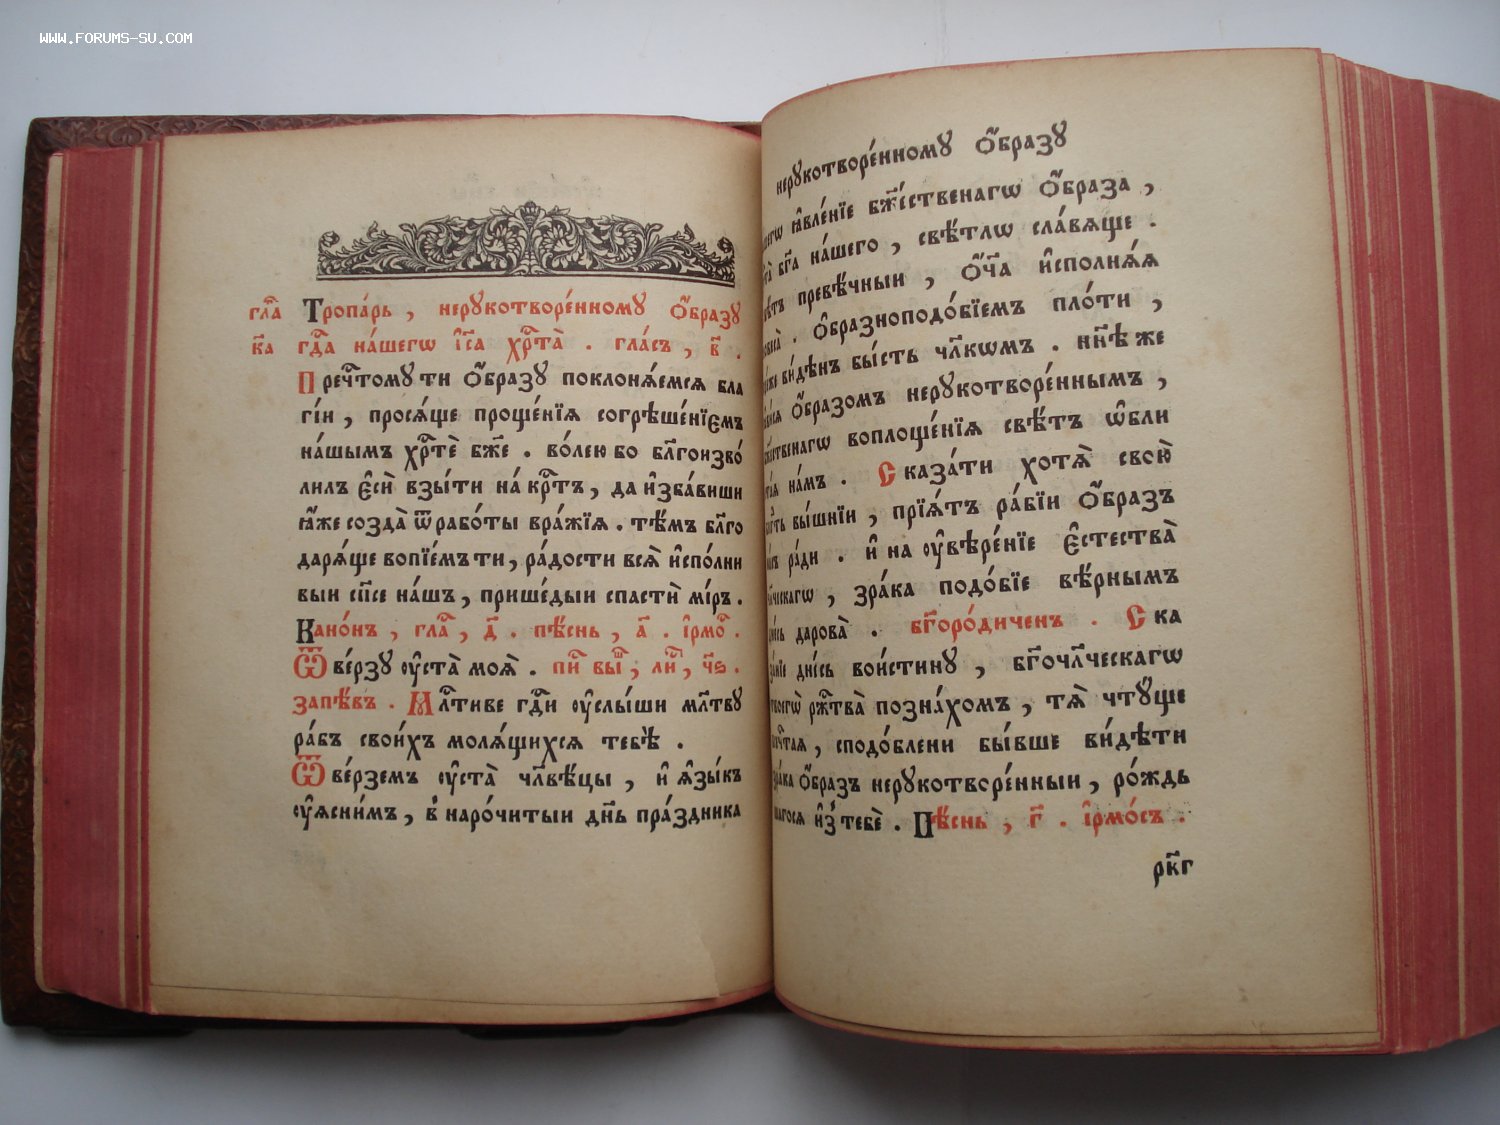 WWW.FORUMS-SU.COM
гла҃ Тропа́рь , нерꙋкотворе́нномꙋ ѻ҆́бразꙋ
к҃а гдⷭ҇а на́шегѡ і҆с҃а хрⷭ҇та̀ . гла́съ , в҃ .
Пречⷭ҇томꙋ ти ѻ҆́бразꙋ поклонѧ́емсѧ бла
гі́и , просѧ́ще проще́нїѧ согрѣше́нїемъ
на́шымъ хрⷭ҇тѐ бж҃е . во́лею бо бл҃гоизво́
лилъ є҆сѝ взы́ти на крⷭ҇тъ , да и҆зба́виши
ꙗ҆̀же созда̀ ѿ рабо́ты вра́жїѧ . тѣ́мъ бл҃го
дарѧ́ще вопїе́мъ ти , ра́дости всѧ̀ и҆спо́лни
выи сп҃се на́шъ , прише́дыи спастѝ мі́ръ .
Кано́нъ , гла҃ , д҃ . пѣ́снь , а҃ . і҆рмоⷭ҇ .
Ѿве́рзꙋ ᲂу҆ста̀ моѧ̀ .
запѣ́въ . Млⷭ҇тиве гдⷭ҇и ᲂу҆слы́ши мл҃твꙋ
ра́бъ свои́хъ молѧ́щихсѧ тебѣ̀ .
Ѿве́рземъ ᲂу҆ста̀ чл҃вѣ́цы , и҆ ѧ҆зы́къ
ᲂу҆ѧсни́мъ , в̾ наро́читыи дн҃ь пра́здника
нерꙋкотворе́нномꙋ ѻ҆́бразꙋ
ꙗ҆вле́нїе бж҃е́ственагѡ ѻ҆́браза ,
бг҃а на́шего , свѣ́тлѡ сла́вѧще .
превѣ́чныи , ѻ҆ч҃а и҆сполнѧ́ѧ
ѻ҆бразноподо́бїемъ пло́ти ,
ви́дѣнъ бы́сть чл҃кѡмъ . нн҃ѣ же
ѻ҆́бразомъ нерꙋкотворе́ннымъ ,
воплоще́нїѧ свѣ́тъ ѡ҆бли
на́мъ . Сказа́ти хотѧ̀ свою̀
вы́шнїи , прїѧ́тъ ра́бїи ѻ҆́бразъ
ра́ди . и҆ на ᲂу҆вѣре́нїе є҆стества̀
зра́ка подо́бїе вѣ́рнымъ
дарова̀ . бг҃оро́диченъ . Ска
дне́сь вои́стинꙋ , бг҃очл҃ческагѡ
ржⷭ҇тва̀ позна́хомъ , тѧ̀ чтꙋ́ще
сподо́блени бы́вше ви́дѣти
ѻ҆́бразъ нерꙋкотворе́нныи , ро́ждь
шагосѧ и҆з̾ тебѐ . Пѣ́снь , г҃ . і҆рмо́съ .
рк҃г